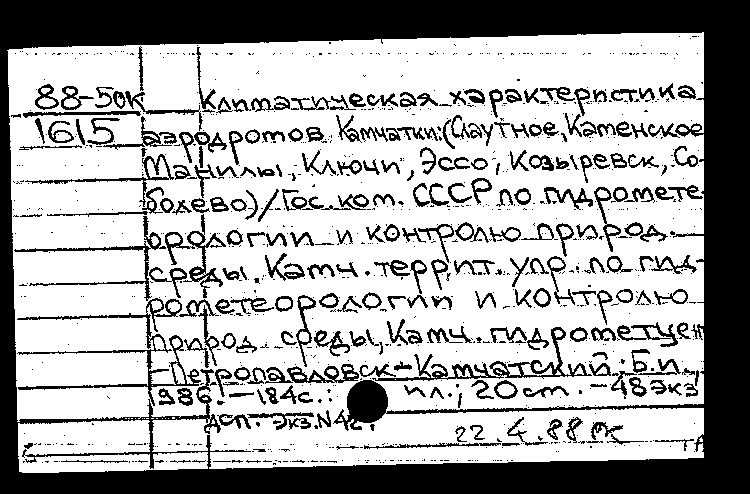 88-50к Климатическая характеристика
1615 аэродромов Камчатки:(Слаутное, Каменское
Манилы, Ключи, Эссо, Козыревск, Со-
болево)/Гос. ком. СССР по гидромете-
орологии и контролю природ.
среды. Камч. террит. упр. по гид-
рометеорологии и контролю
природ. среды, Камч. гидрометцент
-Петропавловск-Камчатский: Б.и.,
1986.-184с.: ил.; 20см.-48экз
ДСП. Экз.N42.
22.4.88 ок